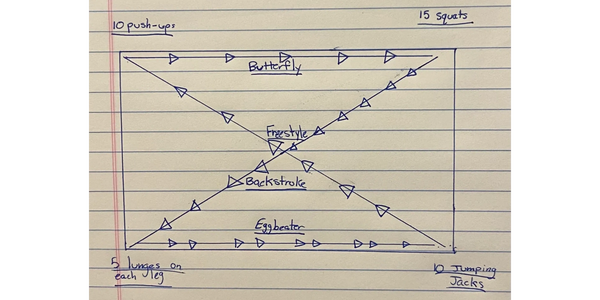 10 push-ups
15 squats
Butterfly
Freestyle
Backstroke
Eggbeater
5 lunges on
each leg
10 Jumping
Jacks